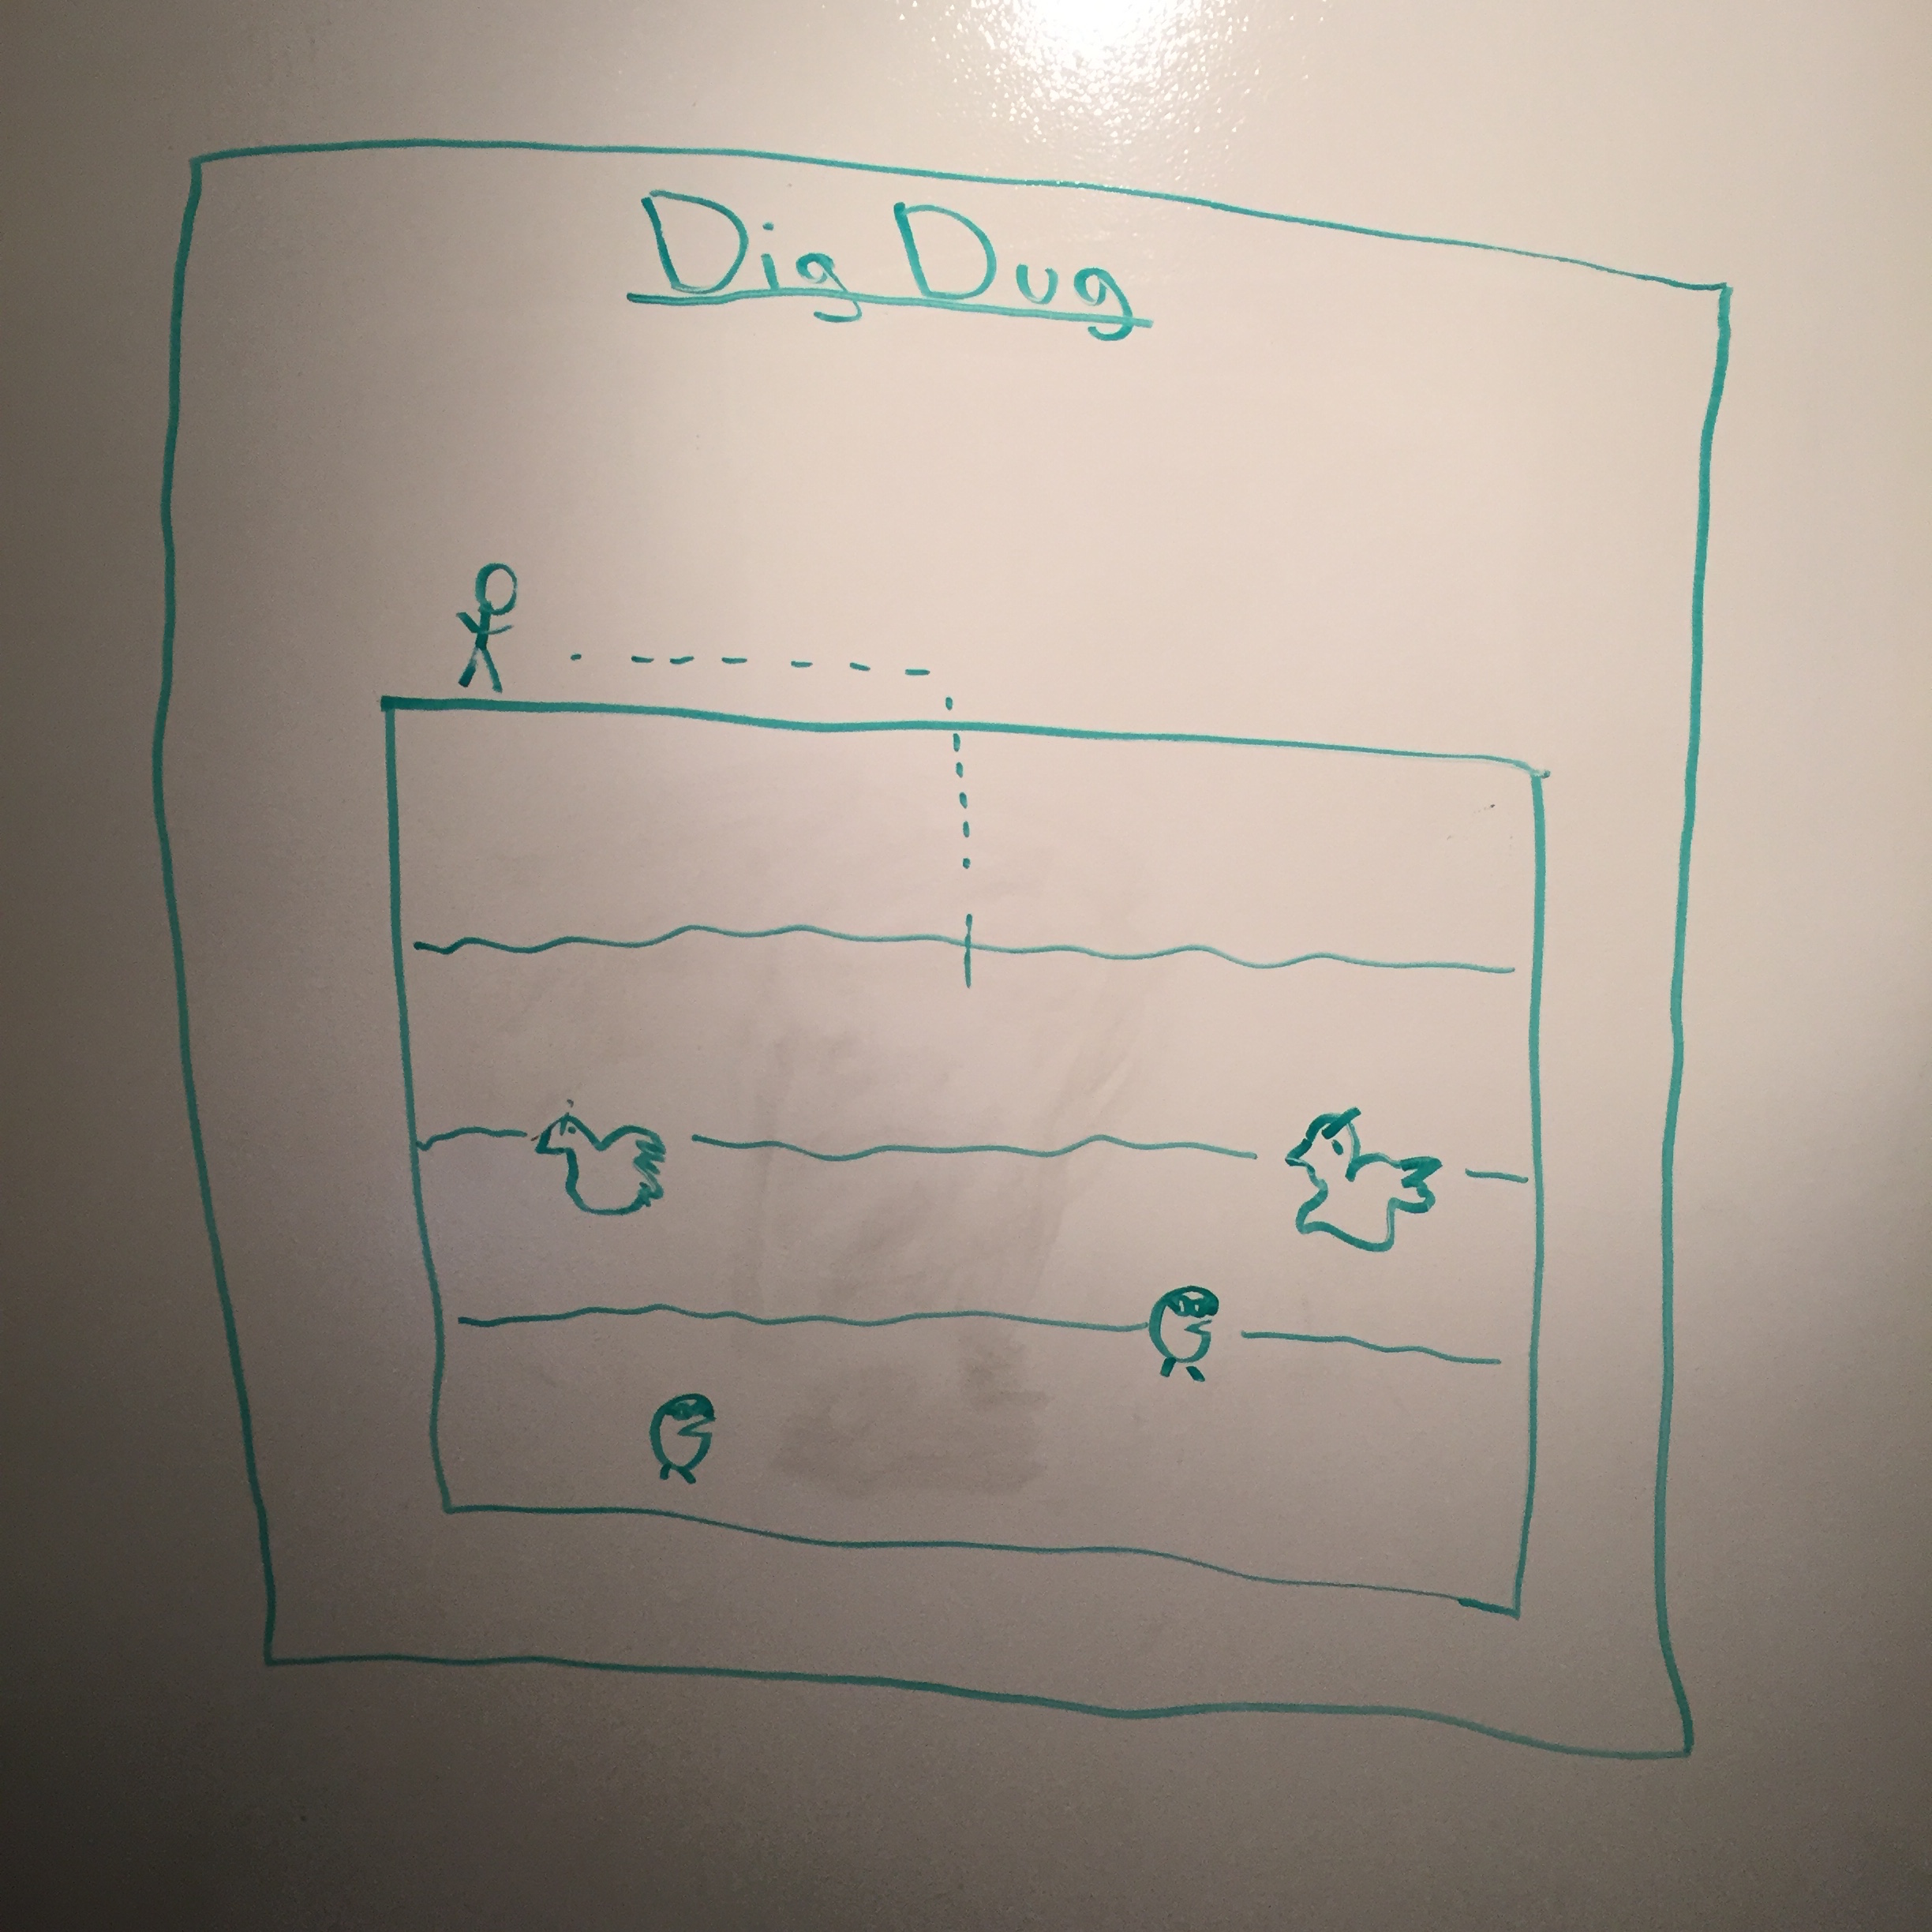 Dig Dug